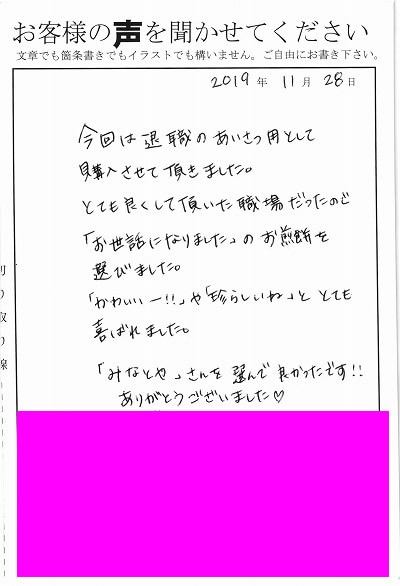 お客様の声を聞かせてください
文章でも箇条書きでもイラストでも構いません。ご自由にお書き下さい。
2019年 11月 28日
今回は退職のあいさつ用として
購入させて頂きました。
とても良くして頂いた職場だったので
「お世話になりました」のお煎餅を
選びました。
「かわいいー!!」や「珍らしいね」ととても
喜ばれました。
「みなとや」さんを選んで良かったです!!
ありがとうございました♡
切り取り線